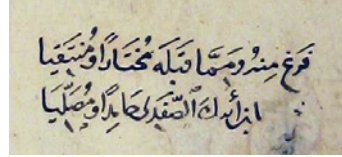 فرغ منه ومما قبله مختارا ومنتقيا
ابن أيبك الصفدي حامدا ومصليا